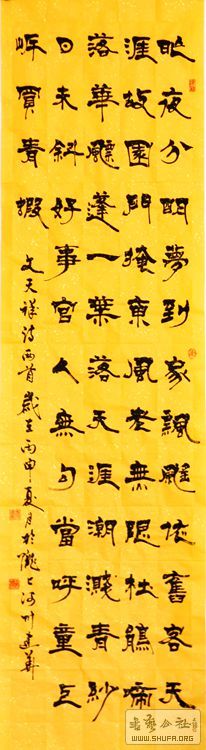 昨夜分明夢到家飄飖依舊客天
涯故園門掩東風老無限杜鵑啼
落華飄蓬一葉落天涯潮濺青紗
日未斜好事官人無勾當呼童上
岸買青蝦
文天祥詩兩首歲在丙申夏月於隴上河州建華
WWW.SHUFA.ORG